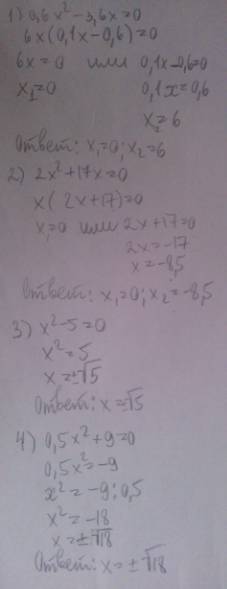 1) 0,6x²-3,6x=0
6x(0,1x-0,6)=0
6x=0 или 0,1x-0,6=0
x₁=0 0,1x=0,6
x₂=6
Ответ: x₁=0; x₂=6
2) 2x²+17x=0
x(2x+17)=0
x₁=0 или 2x+17=0
2x=-17
x=-8,5
Ответ: x₁=0; x₂=-8,5
3) x²-5=0
x²=5
x=±√5
Ответ: x=±√5
4) 0,5x²+9=0
0,5x²=-9
x²=-9:0,5
x²=-18
x=±√18
Ответ: x=±√18